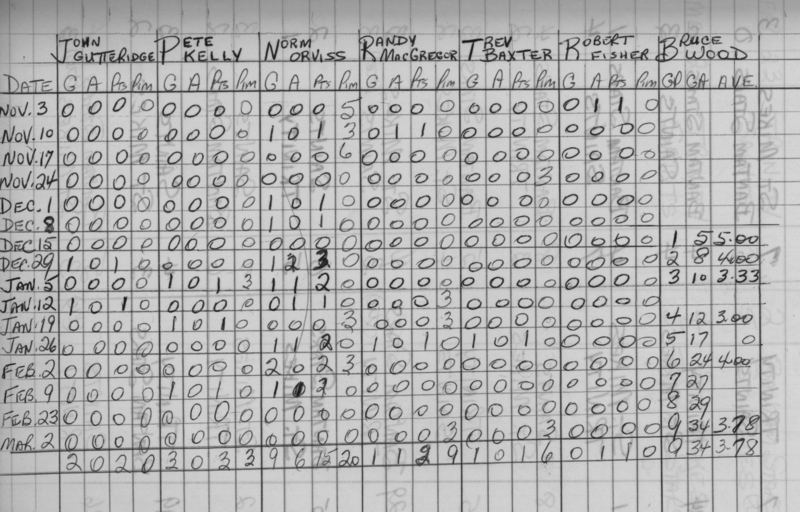 JOHN GUTTERIDGE PETE KELLY NORM ORVISS RANDY MACGREGOR TREV BAXTER ROBERT FISHER BRUCE WOOD
DATE G A Pts Pim G A Pts Pim G A Pts Pim G A Pts Pim G A Pts Pim G A Pts Pim GP GA AVE.
NOV. 3 0 0 0 0 0 0 0 0 0 0 0 5 0 0 0 0 0 0 0 0 0 1 1 0
NOV. 10 0 0 0 0 0 0 0 0 1 0 1 3 0 1 1 0 0 0 0 0 0 0 0 0
NOV. 17 0 0 0 0 0 0 0 0 0 0 0 6 0 0 0 0 0 0 0 0 0 0 0 0
NOV. 24 0 0 0 0 0 0 0 0 0 0 0 0 0 0 0 0 0 0 0 3 0 0 0 0
DEC. 1 0 0 0 0 0 0 0 0 1 0 1 0 0 0 0 0 0 0 0 0 0 0 0 0
DEC. 8 0 0 0 0 0 0 0 0 1 0 1 0 0 0 0 0 0 0 0 0 0 0 0 0
DEC. 15 0 0 0 0 0 0 0 0 0 0 0 0 0 0 0 0 0 0 0 0 0 0 0 0 1 5 5.00
DEC. 29 1 0 1 0 0 0 0 0 1 2 3 0 0 0 0 0 0 0 0 0 0 0 0 0 2 8 4.00
JAN. 5 0 0 0 0 1 0 1 3 1 1 2 0 0 0 0 0 0 0 0 0 0 0 0 0 3 10 3.33
JAN. 12 1 0 1 0 0 0 0 0 0 1 1 0 0 0 0 3 0 0 0 0 0 0 0 0
JAN. 19 0 0 0 0 1 0 1 0 0 0 0 3 0 0 0 3 0 0 0 0 0 0 0 0 4 12 3.00
JAN. 26 0 0 0 0 0 0 0 0 1 1 2 0 1 0 1 0 1 0 1 0 0 0 0 0 5 17 0
FEB. 2 0 0 0 0 0 0 0 0 2 0 2 3 0 0 0 0 0 0 0 0 0 0 0 0 6 24 4.00
FEB. 9 0 0 0 0 1 0 1 0 1 2 0 0 0 0 0 0 0 0 0 0 0 0 0 7 27
FEB. 23 0 0 0 0 0 0 0 0 0 0 0 0 0 0 0 0 0 0 0 0 0 0 0 0 8 29
MAR. 2 0 0 0 0 0 0 0 0 0 0 0 0 0 0 0 3 0 0 0 3 0 0 0 0 9 34 3.78
2 0 2 0 3 0 3 3 9 6 15 20 1 1 2 9 1 0 1 6 0 1 1 0 9 34 3.78